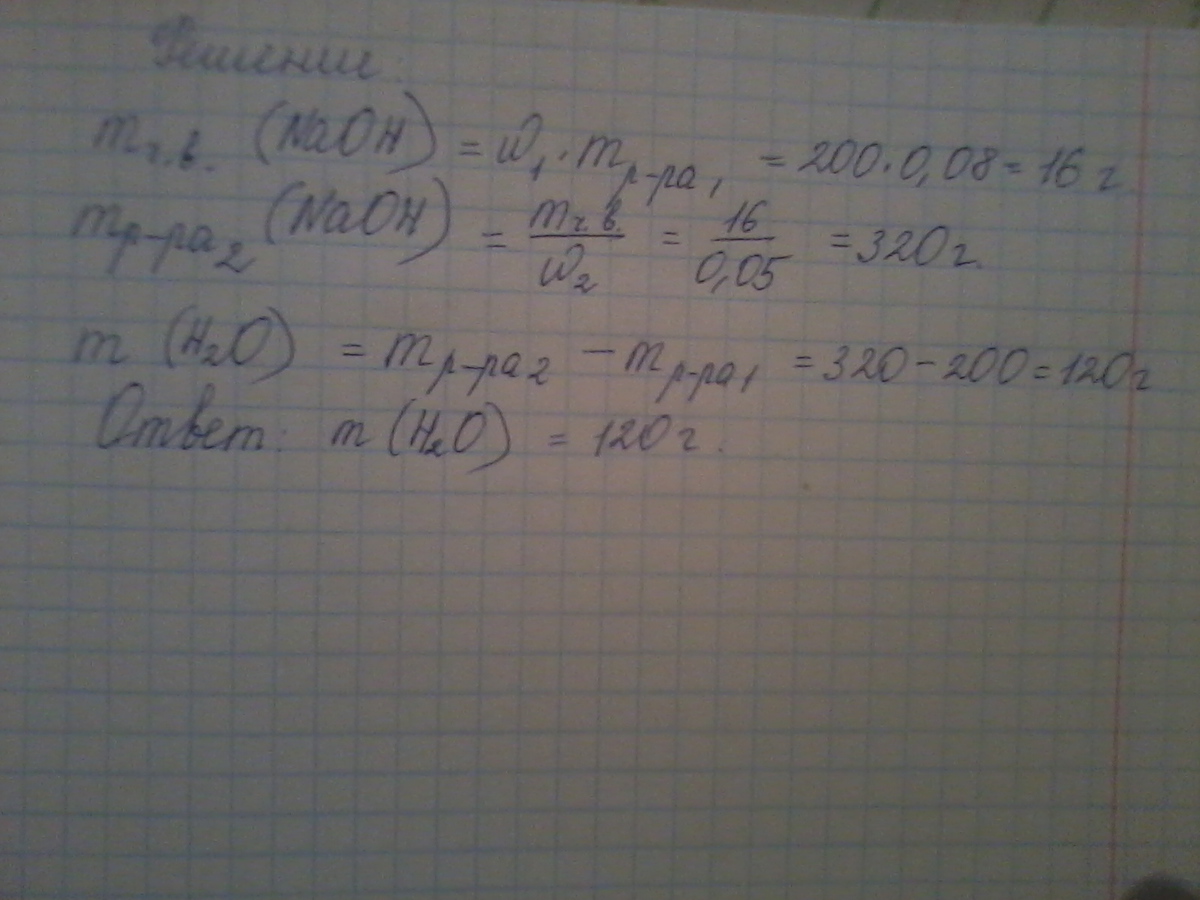 Решение:
m ч.в. (NaOH) = ω₁ · m р-ра₁ = 200 · 0,08 = 16 г
m р-ра₂ (NaOH) = m ч.в. / ω₂ = 16 / 0,05 = 320 г.
m (H₂O) = m р-ра₂ – m р-ра₁ = 320 – 200 = 120 г
Ответ: m (H₂O) = 120 г.